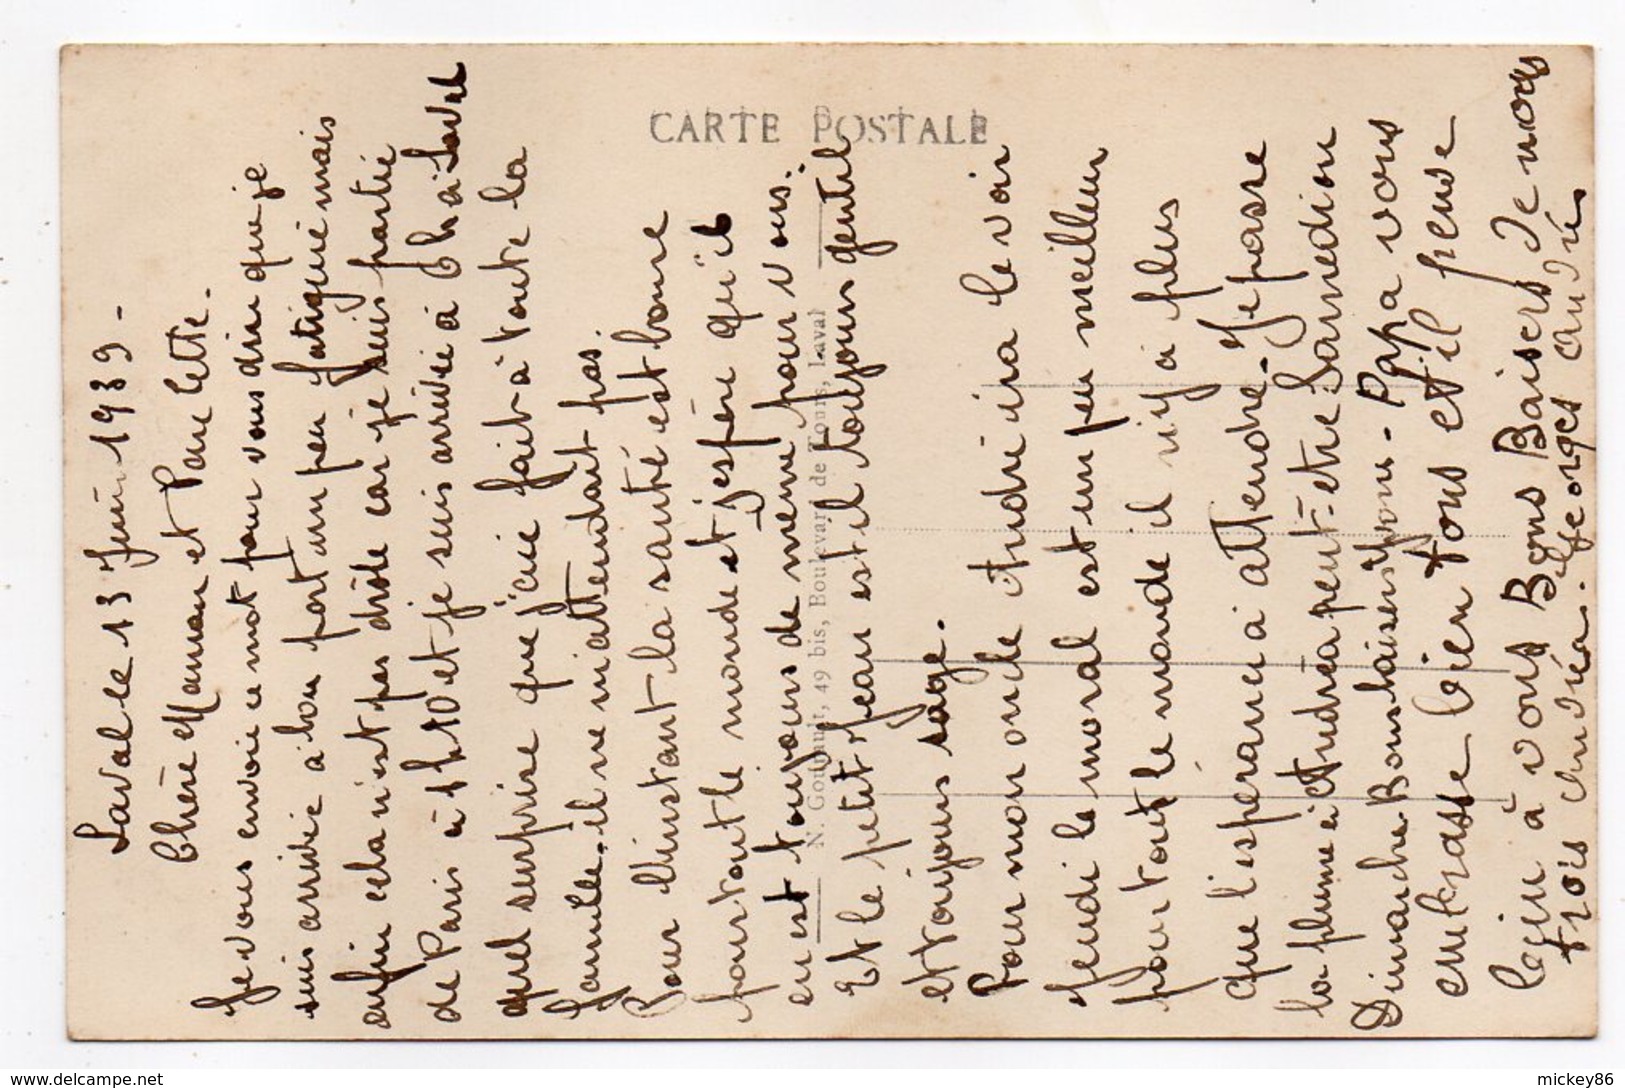 Laval le 13 Juin 1939 -
Chère Maman et Paulette.
Je vous envoie ce mot pour vous dire que je
suis arrivée à bon port un peu fatiguée mais
enfin cela n'est pas drôle car je suis partie
de Paris à 1h10 et je suis arrivée à 6h à Laval
quel surprise que j'aie fait à toute la
famille. il ne m'attendait pas.
Pour l'instant la santé est bonne
pour tout le monde et j'espère qu'il
en est toujours de même pour vous.
Et le petit Jean est il toujours gentil
et toujours sage.
Pour mon oncle André ira le voir
Jeudi le moral est un peu meilleur
pour tout le monde il n'y a plus
que l'esperance a attendre. Je passe
la plume à Andréa peut-être Samedi ou
Dimanche Bons baisers Yvonne - Papa vous
embrasse bien tous et il pense
bien à vous Bons Baisers de nous
trois Andréa. Georges André
CARTE POSTALE
N. Goupil, 49 bis, Boulevard de Tours, Laval
mickey86